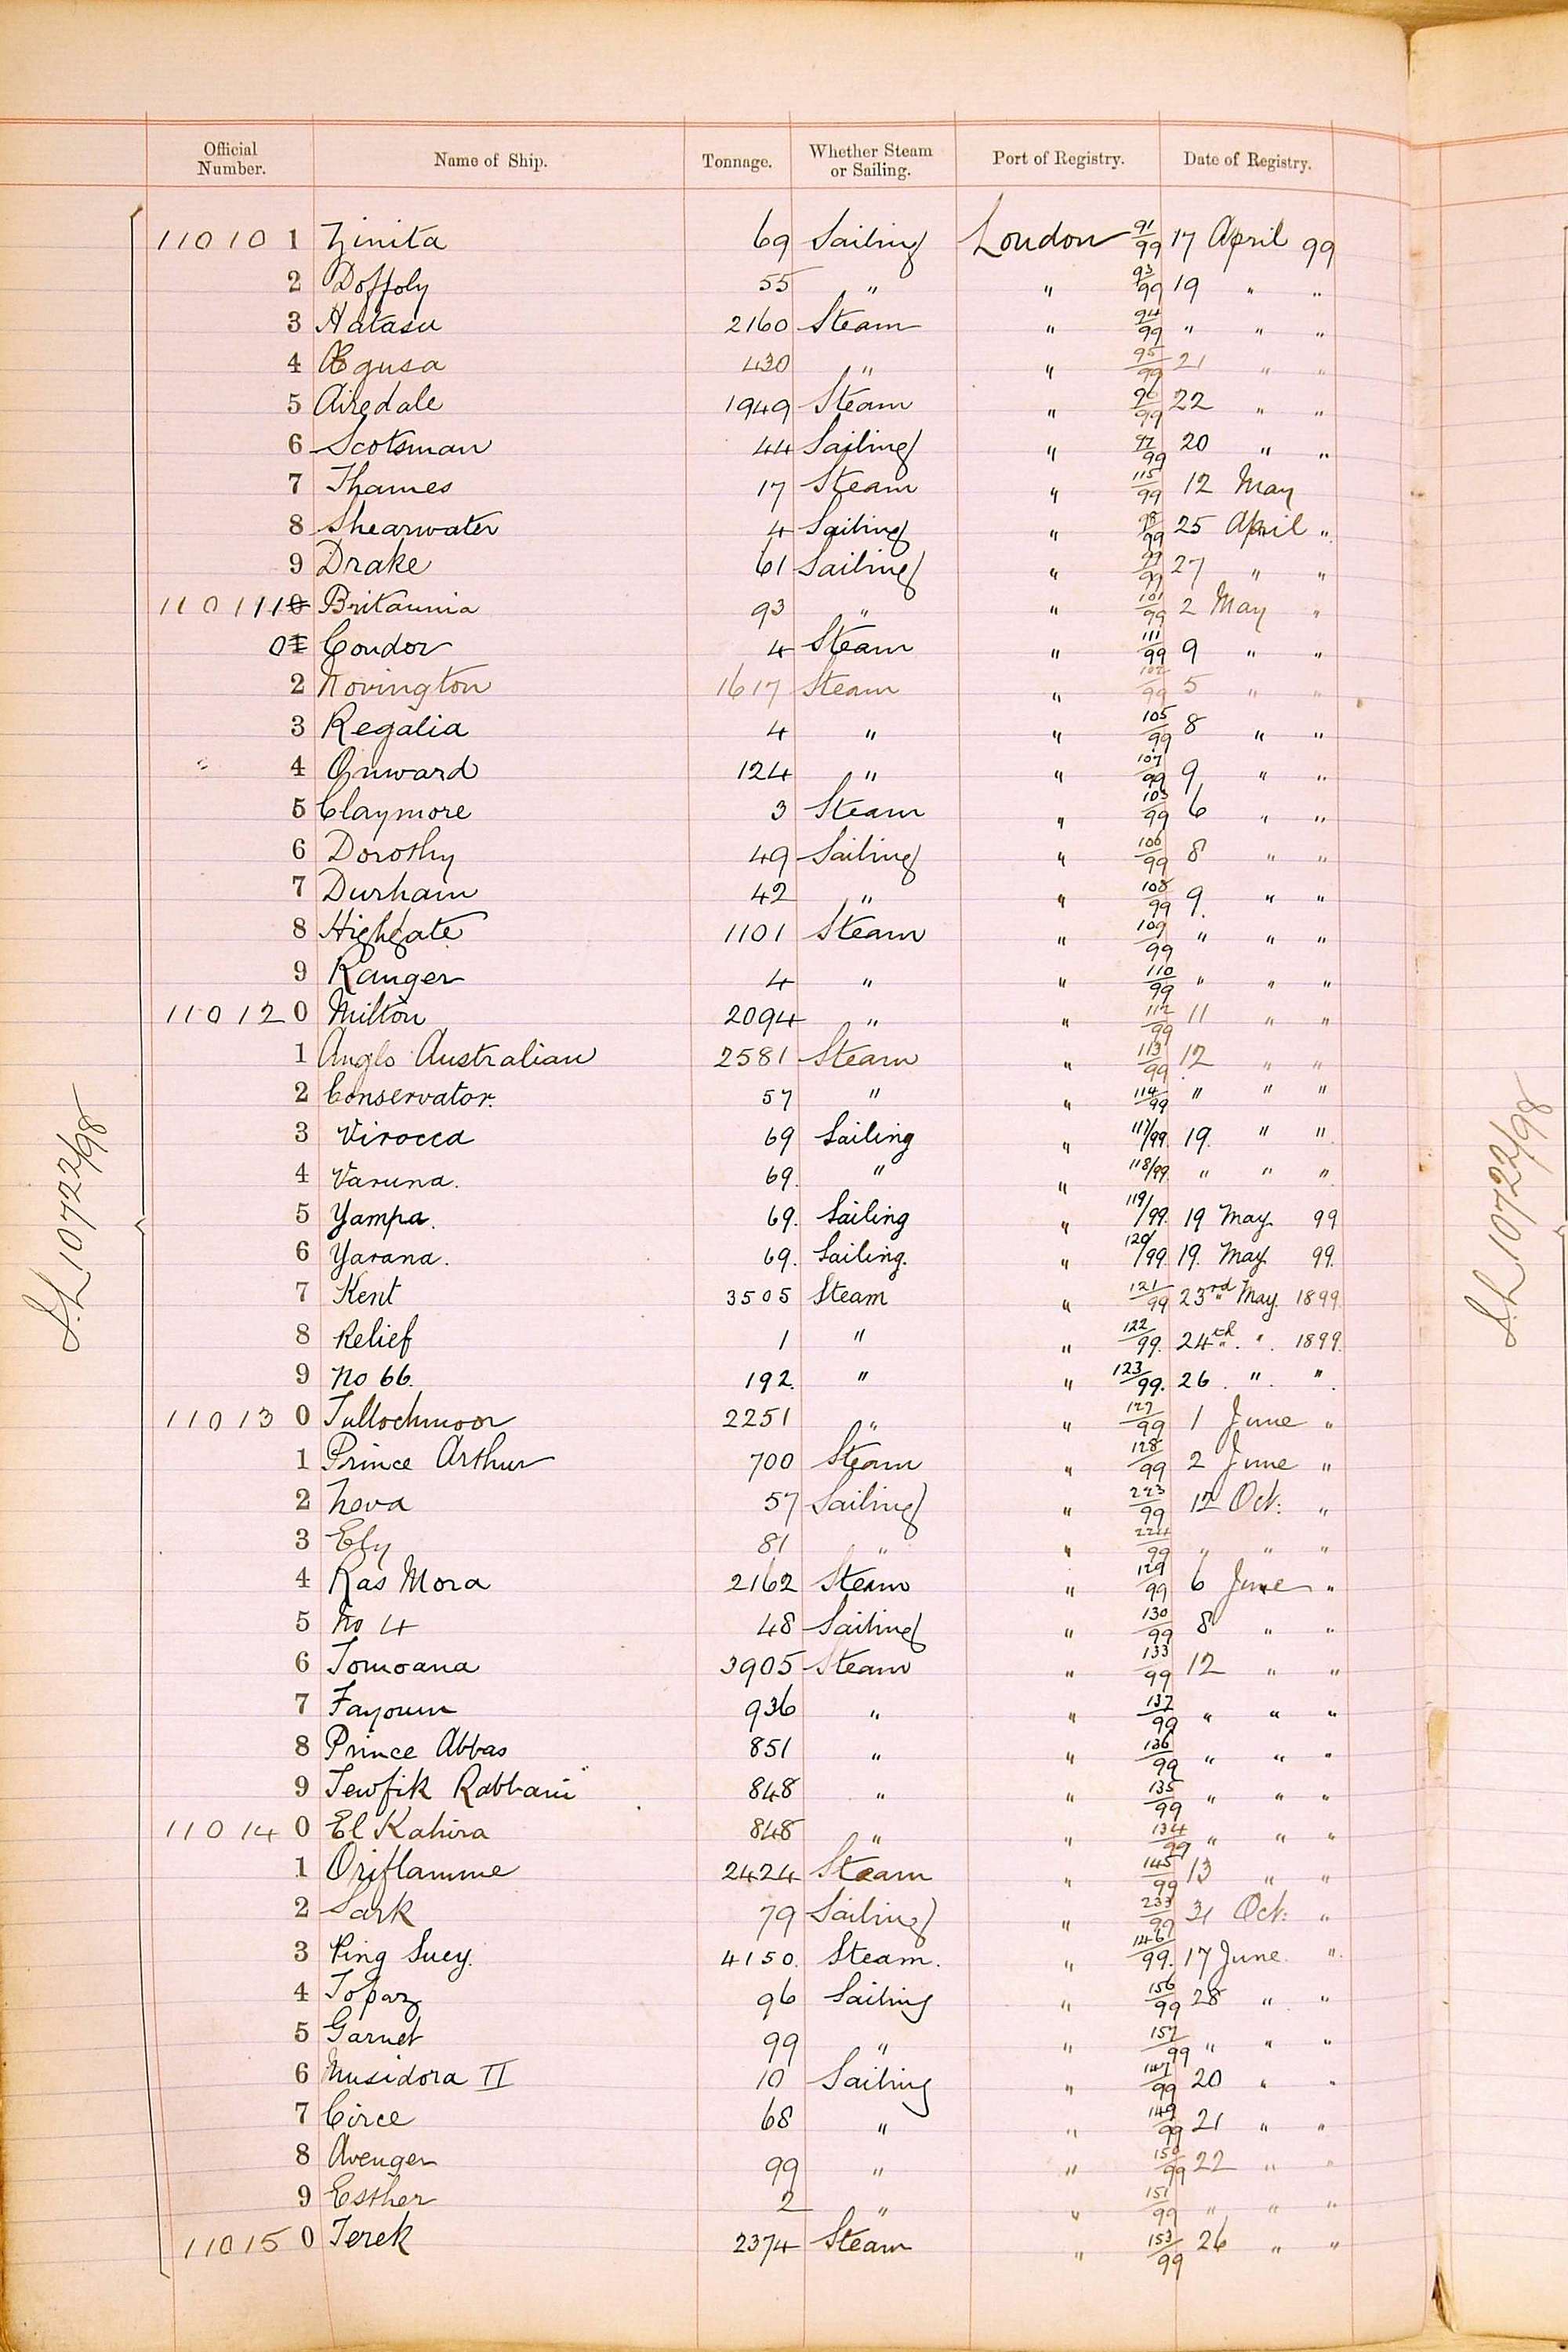 Official Number. Name of Ship. Tonnage. Whether Steam or Sailing. Port of Registry. Date of Registry.
11010 1 Zinita 69 Sailing London 91/99 17 April 99
2 Doffoly 55 " " 93/99 19 " "
3 Hatasu 2160 Steam " 94/99 " " "
4 Ægusa 430 " " 95/99 21 " "
5 Airedale 1949 Steam " 96/99 22 " "
6 Scotsman 44 Sailing " 97/99 20 " "
7 Thames 17 Steam " 115/99 12 May
8 Shearwater 4 Sailing " 98/99 25 April "
9 Drake 61 Sailing " 99/99 27 " "
11011 1 Britannia 93 " " 101/99 2 May "
0 Condor 4 Steam " 111/99 9 " "
2 Novington 1617 Steam " 102/99 5 " "
3 Regalia 4 " " 105/99 8 " "
4 Onward 124 " " 107/99 9 " "
5 Claymore 3 Steam " 103/99 6 " "
6 Dorothy 49 Sailing " 106/99 8 " "
7 Durham 42 " " 108/99 9. " "
8 Highgate 1101 Steam " 109/99 " " "
9 Ranger 4 " " 110/99 " " "
11012 0 Milton 2094 " " 112/99 11 " "
1 Anglo Australian 2581 Steam " 113/99 12 " "
2 Conservator. 57 " " 114/99 " " "
3 Virocca 69 Sailing " 117/99. 19. " "
4 Varuna. 69. " " 118/99. " " "
5 Yampa. 69. Sailing " 119/99. 19 May. 99
6 Yarana. 69. Sailing. " 120/99. 19. May 99.
7 Kent 3505 Steam " 121/99 23rd May. 1899.
8 Relief 1 " " 122/99. 24th. " 1899.
9 No 66. 192. " " 123/99. 26. " "
11013 0 Tullochmoor 2251 " " 127/99 1 June "
1 Prince Arthur 700 Steam " 128/99 2 June "
2 Neva 57 Sailing " 223/99 12 Oct: "
3 Ely 81 " " 224/99 " " "
4 Ras Mora 2162 Steam " 129/99 6 June "
5 No 4 48 Sailing " 130/99 8 " "
6 Tomoana 3905 Steam " 133/99 12 " "
7 Fayoum 936 " " 137/99 " " "
8 Prince Abbas 851 " " 136/99 " " "
9 Tewfik Rabbani 848 " " 135/99 " " "
11014 0 El Kahira 848 " " 134/99 " " "
1 Oriflamme 2424 Steam " 145/99 13 " "
2 Sark 79 Sailing " 233/99 31 Oct: "
3 Ping Suey. 4150. Steam. " 146/99. 17 June. "
4 Topaz 96 Sailing " 156/99 28 " "
5 Garnet 99 " " 157/99 " " "
6 Musidora II 10 Sailing " 147/99 20 " "
7 Circe 68 " " 149/99 21 " "
8 Avenger 99 " " 150/99 22 " "
9 Esther 2 " " 151/99 " " "
11015 0 Terek 2374 Steam " 153/99 26 " "
S.L 10722/98
S.L 10722/98